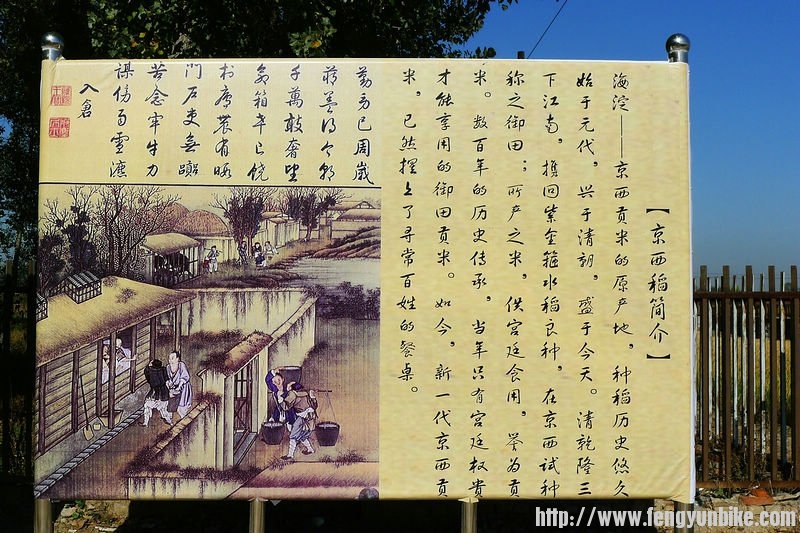 【京西稻简介】
海淀——京西贡米的原产地，种稻历史悠久
始于元代，兴于清朝，盛于今天。清乾隆三
下江南，携回紫金箍水稻良种，在京西试种
称之御田；所产之米，供宫廷食用，誉为贡
米。数百年的历史传承，当年只有宫廷权贵
才能享用的御田贡米。如今，新一代京西贡
米，已然摆上了寻常百姓的餐桌。
已周歲
千萬敲奢望
倉箱幸已饒
農有暇
門戶吏無
苦念牢牛力
入倉
http://www.fengyunbike.com